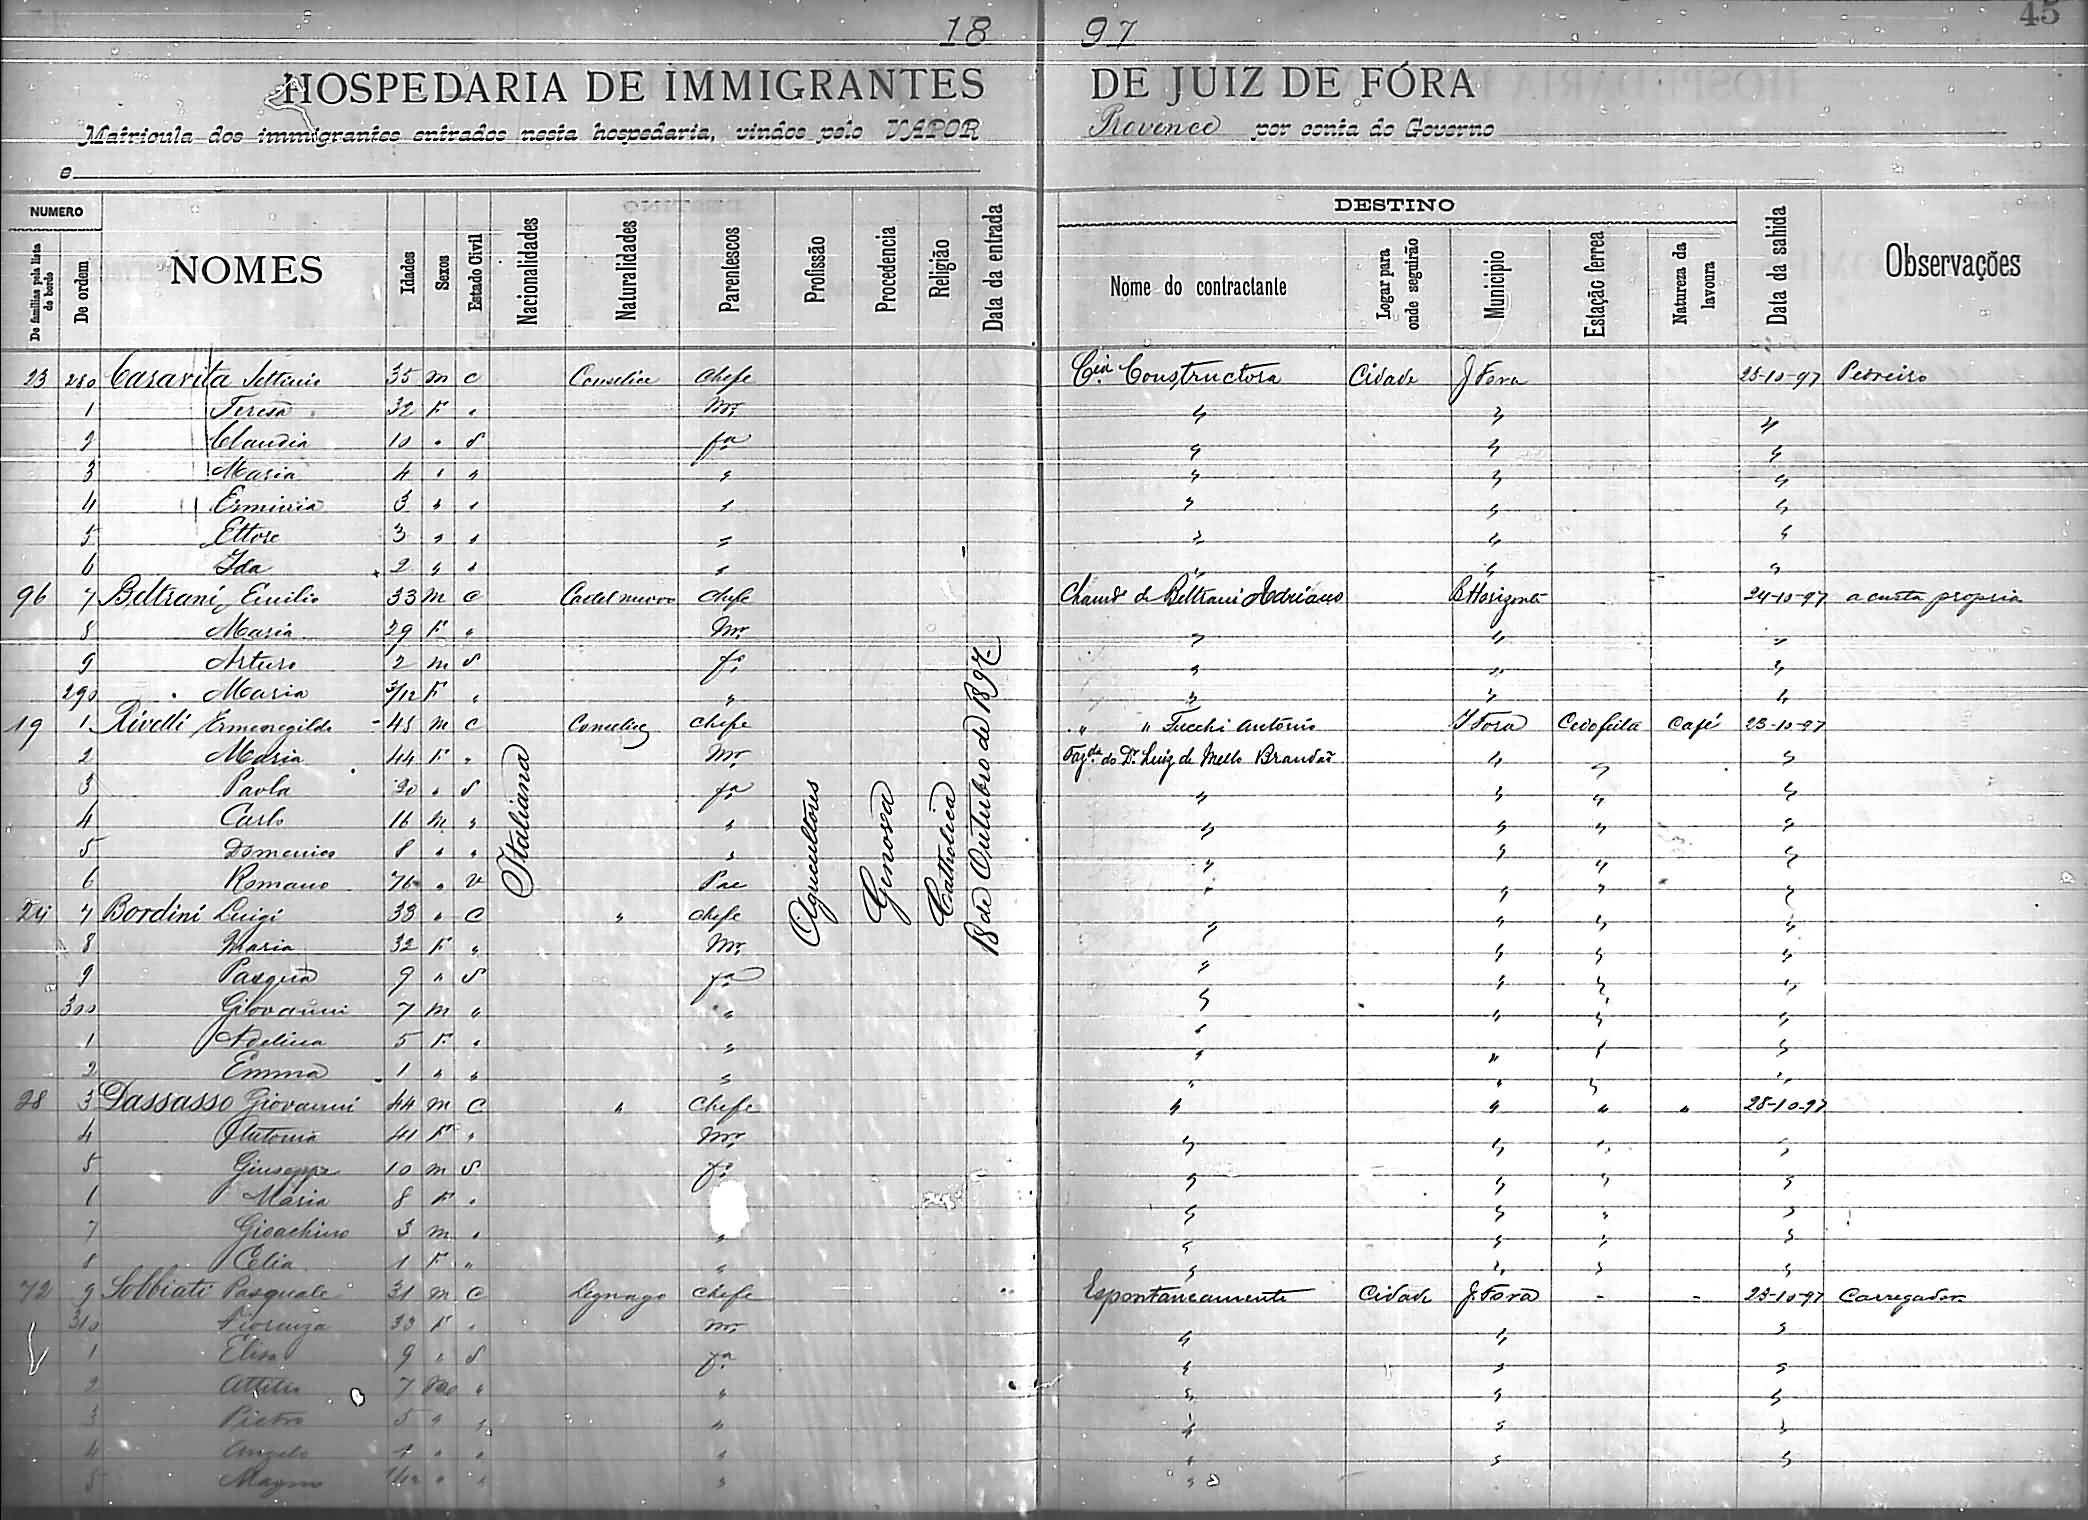 45
18 97
HOSPEDARIA DE IMMIGRANTES DE JUIZ DE FÓRA
Matricula dos immigrantes entrados nesta hospedaria, vindos pelo VAPOR Provence por conta do Governo
e
NUMERO DESTINO
De familias pela lista de bordo De ordem NOMES Idades Sexos Estado Civil Nacionalidades Naturalidades Parentescos Profissão Procedencia Religião Data da entrada Nome do contractante Logar para onde seguirão Municipio Estação ferrea Natureza da lavoura Data da sahida Observações
23 280 Casavita Settimio 35 m c Conselice Chefe Cia Constructora Cidade J Fora 25-10-97 Pedreiro
1 Teresa 32 F " Mr " " "
2 Claudia 10 " S fa " " "
3 Maria 4 " " " " " "
4 Erminia 3 " " " " " "
5 Ettore 3 " " " " " "
6 Ida 2 " " " " " "
96 7 Beltrani Emilio 33 m c Castel nuovo Chefe Chamdo de Beltrani Adriano B Horizonte 24-10-97 a custa propria
8 Maria 29 F " Mr " " "
9 Arturo 2 m S fo " " "
290 Maria 3/12 F " " " " "
19 1 Rivelli Ermenegildo 45 m c Conselice Chefe " " Fucchi Antonio J Fora Cedofeita Café 23-10-97
2 Maria 44 F " Mr Fazda do Dr Luiz de Mello Brandão " " "
3 Paola 20 " S fa " " " "
4 Carlo 16 m " " " " " "
5 Domenico 8 " " " " " " "
6 Romano 76 " v Pae " " " "
24 7 Bordini Luigi 33 " c " Chefe " " " "
8 Maria 32 F " Mr " " " "
9 Pasqua 9 " S fa " " " "
300 Giovanni 7 m " " " " " "
1 Adelina 5 F " " " " " "
2 Emma 1 " " " " " " "
28 3 Dassasso Giovanni 44 m c " Chefe " " " " 28-10-97
4 Antonia 41 F " Mr " " " "
5 Giuseppe 10 m S fo " " " "
1 Maria 8 F " " " " "
7 Gioachino 3 m " " " " " "
8 Celia 1 F " " " " " "
72 9 Solbiati Pasquale 31 m c Legnago Chefe Espontaneamente Cidade J. Fora - - 23-10-97 Carregador
310 Fiorenza 33 F " Mr " " "
1 Elisa 9 " S fa " " "
2 Attilio 7 m " " " " "
3 Pietro 5 " " " " " "
4 Angelo " " " " " "
5 Magno " " " "
Italiana
Agricultores
Genova
Catholica
18 de Outubro de 1897